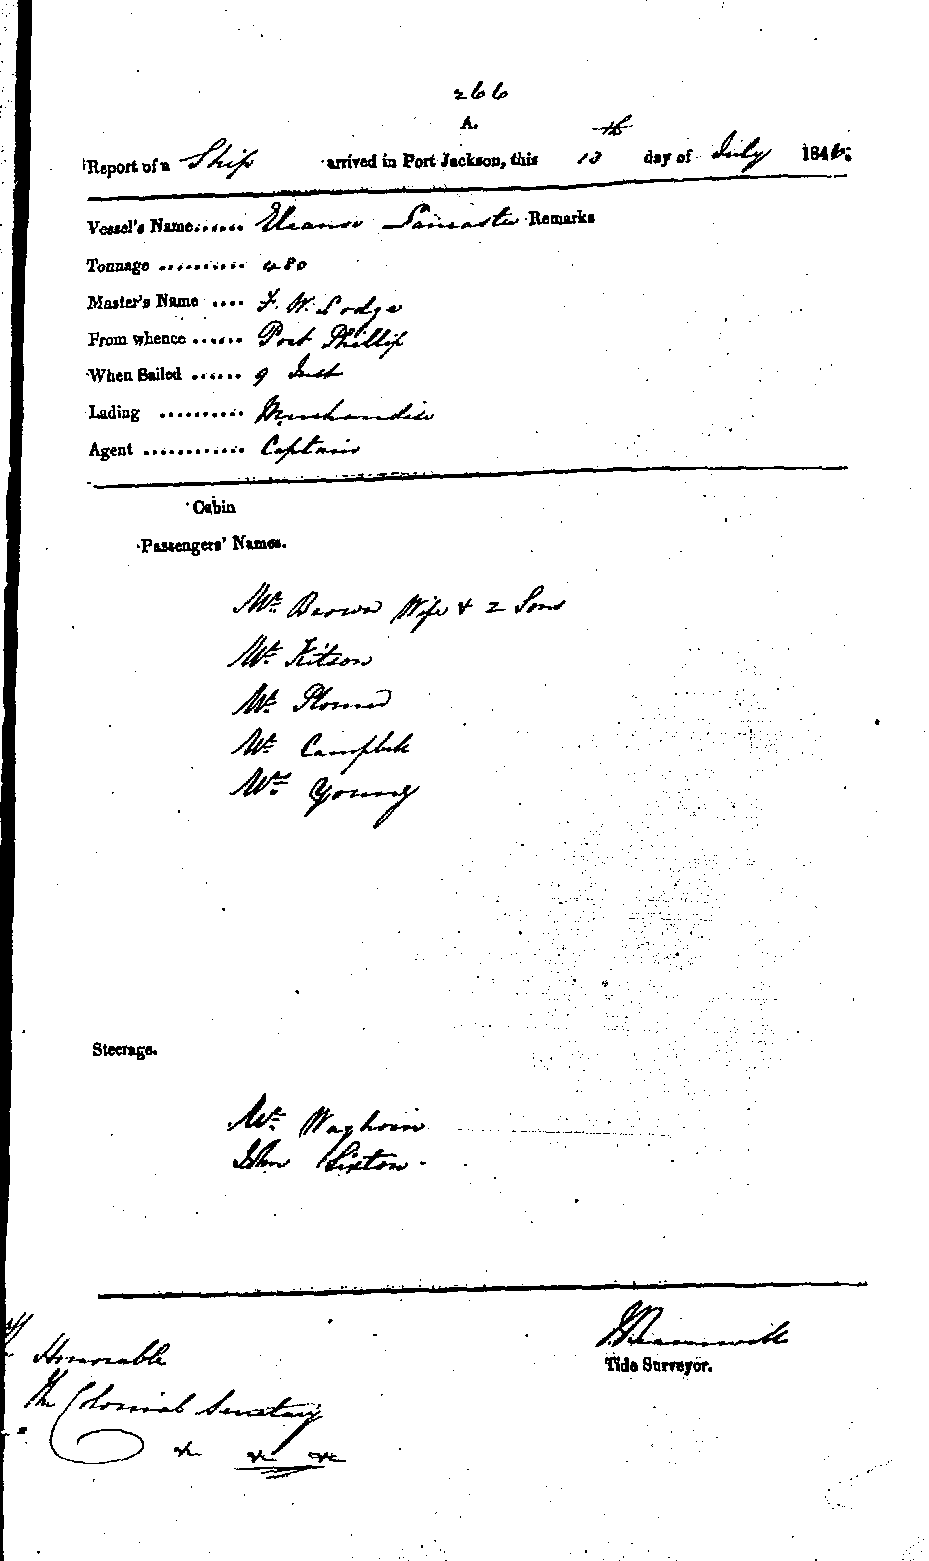 266
A.
Report of a Ship arrived in Port Jackson, this 13th day of July 1846.
Vessel's Name....... Eleanor Lancaster Remarks
Tonnage .......... 480
Master's Name .... F. W. Lodge
From whence ...... Port Phillip
When Sailed ...... 9 Inst
Lading .......... Merchandise
Agent ............ Captain
Cabin
Passengers' Names.
Mr. Brown Wife & 2 Sons
Mr. Kitson
Mr.
Mr. Campbell
Mrs. Young
Steerage.
Mr. Waghorn
John Sixton
Honorable
The Colonial Secretary
&c &c &c
Tide Surveyor.